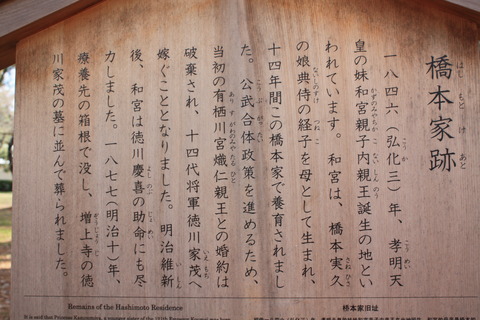 橋本家跡
はし もと け あと
一八四六(弘化三)年、孝明天
皇の妹和宮親子内親王誕生の地とい
われています。和宮は、橋本実久
の娘典侍の経子を母として生まれ、
十四年間この橋本家で養育されまし
た。公武合体政策を進めるため、
当初の有栖川宮熾仁親王との婚約は
破棄され、十四代将軍徳川家茂へ
嫁ぐこととなりました。明治維新
後、和宮は徳川慶喜の助命にも尽
力しました。一八七七(明治十)年、
療養先の箱根で没し、増上寺の徳
川家茂の墓に並んで葬られました。
Remains of the Hashimoto Residence
桥本家旧址